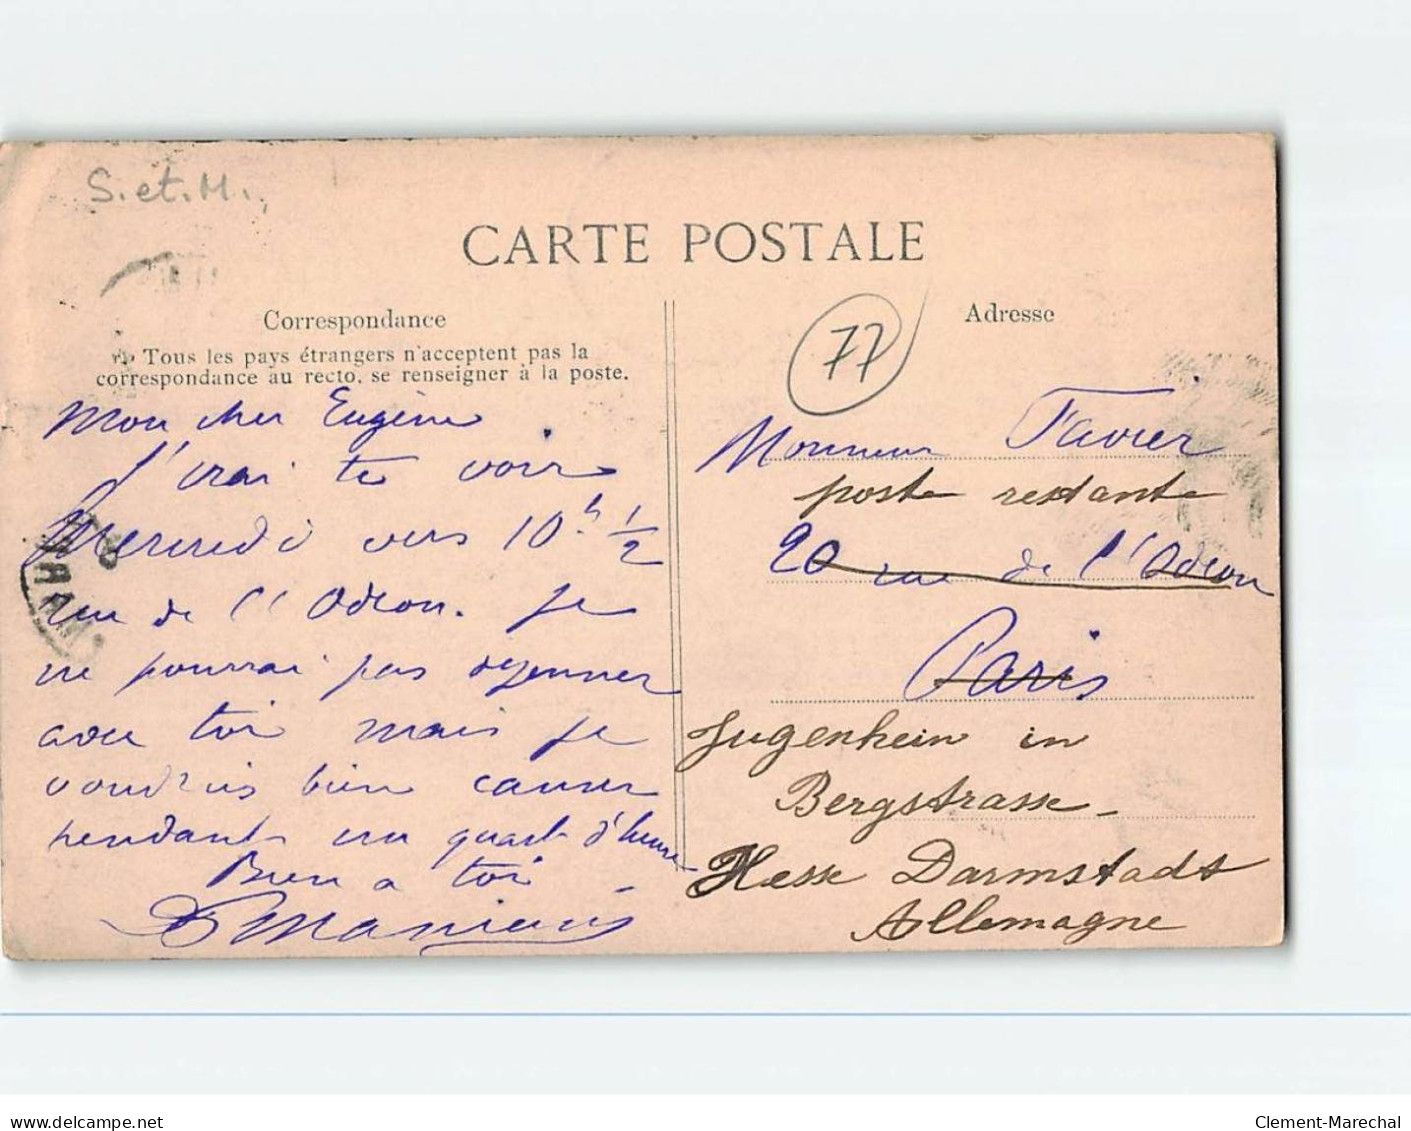 S. et. M.
CARTE POSTALE
Correspondance
Tous les pays étrangers n'acceptent pas la
correspondance au recto, se renseigner à la poste.
Mon cher Eugène
J'irai te voir
Mercredi vers 10h 1/2
rue de l'Odéon. Je
ne pourrai pas dejeuner
avec toi mais je
voudrais bien causer
pendant un quart d'heure
Bien a toi
77
Adresse
Monsieur Favier
poste restante
20 rue de l'Odéon
Paris
Jugenheim in
Bergstrasse
Hesse Darmstadt
Allemagne
delcampe.net
Clement-Marechal